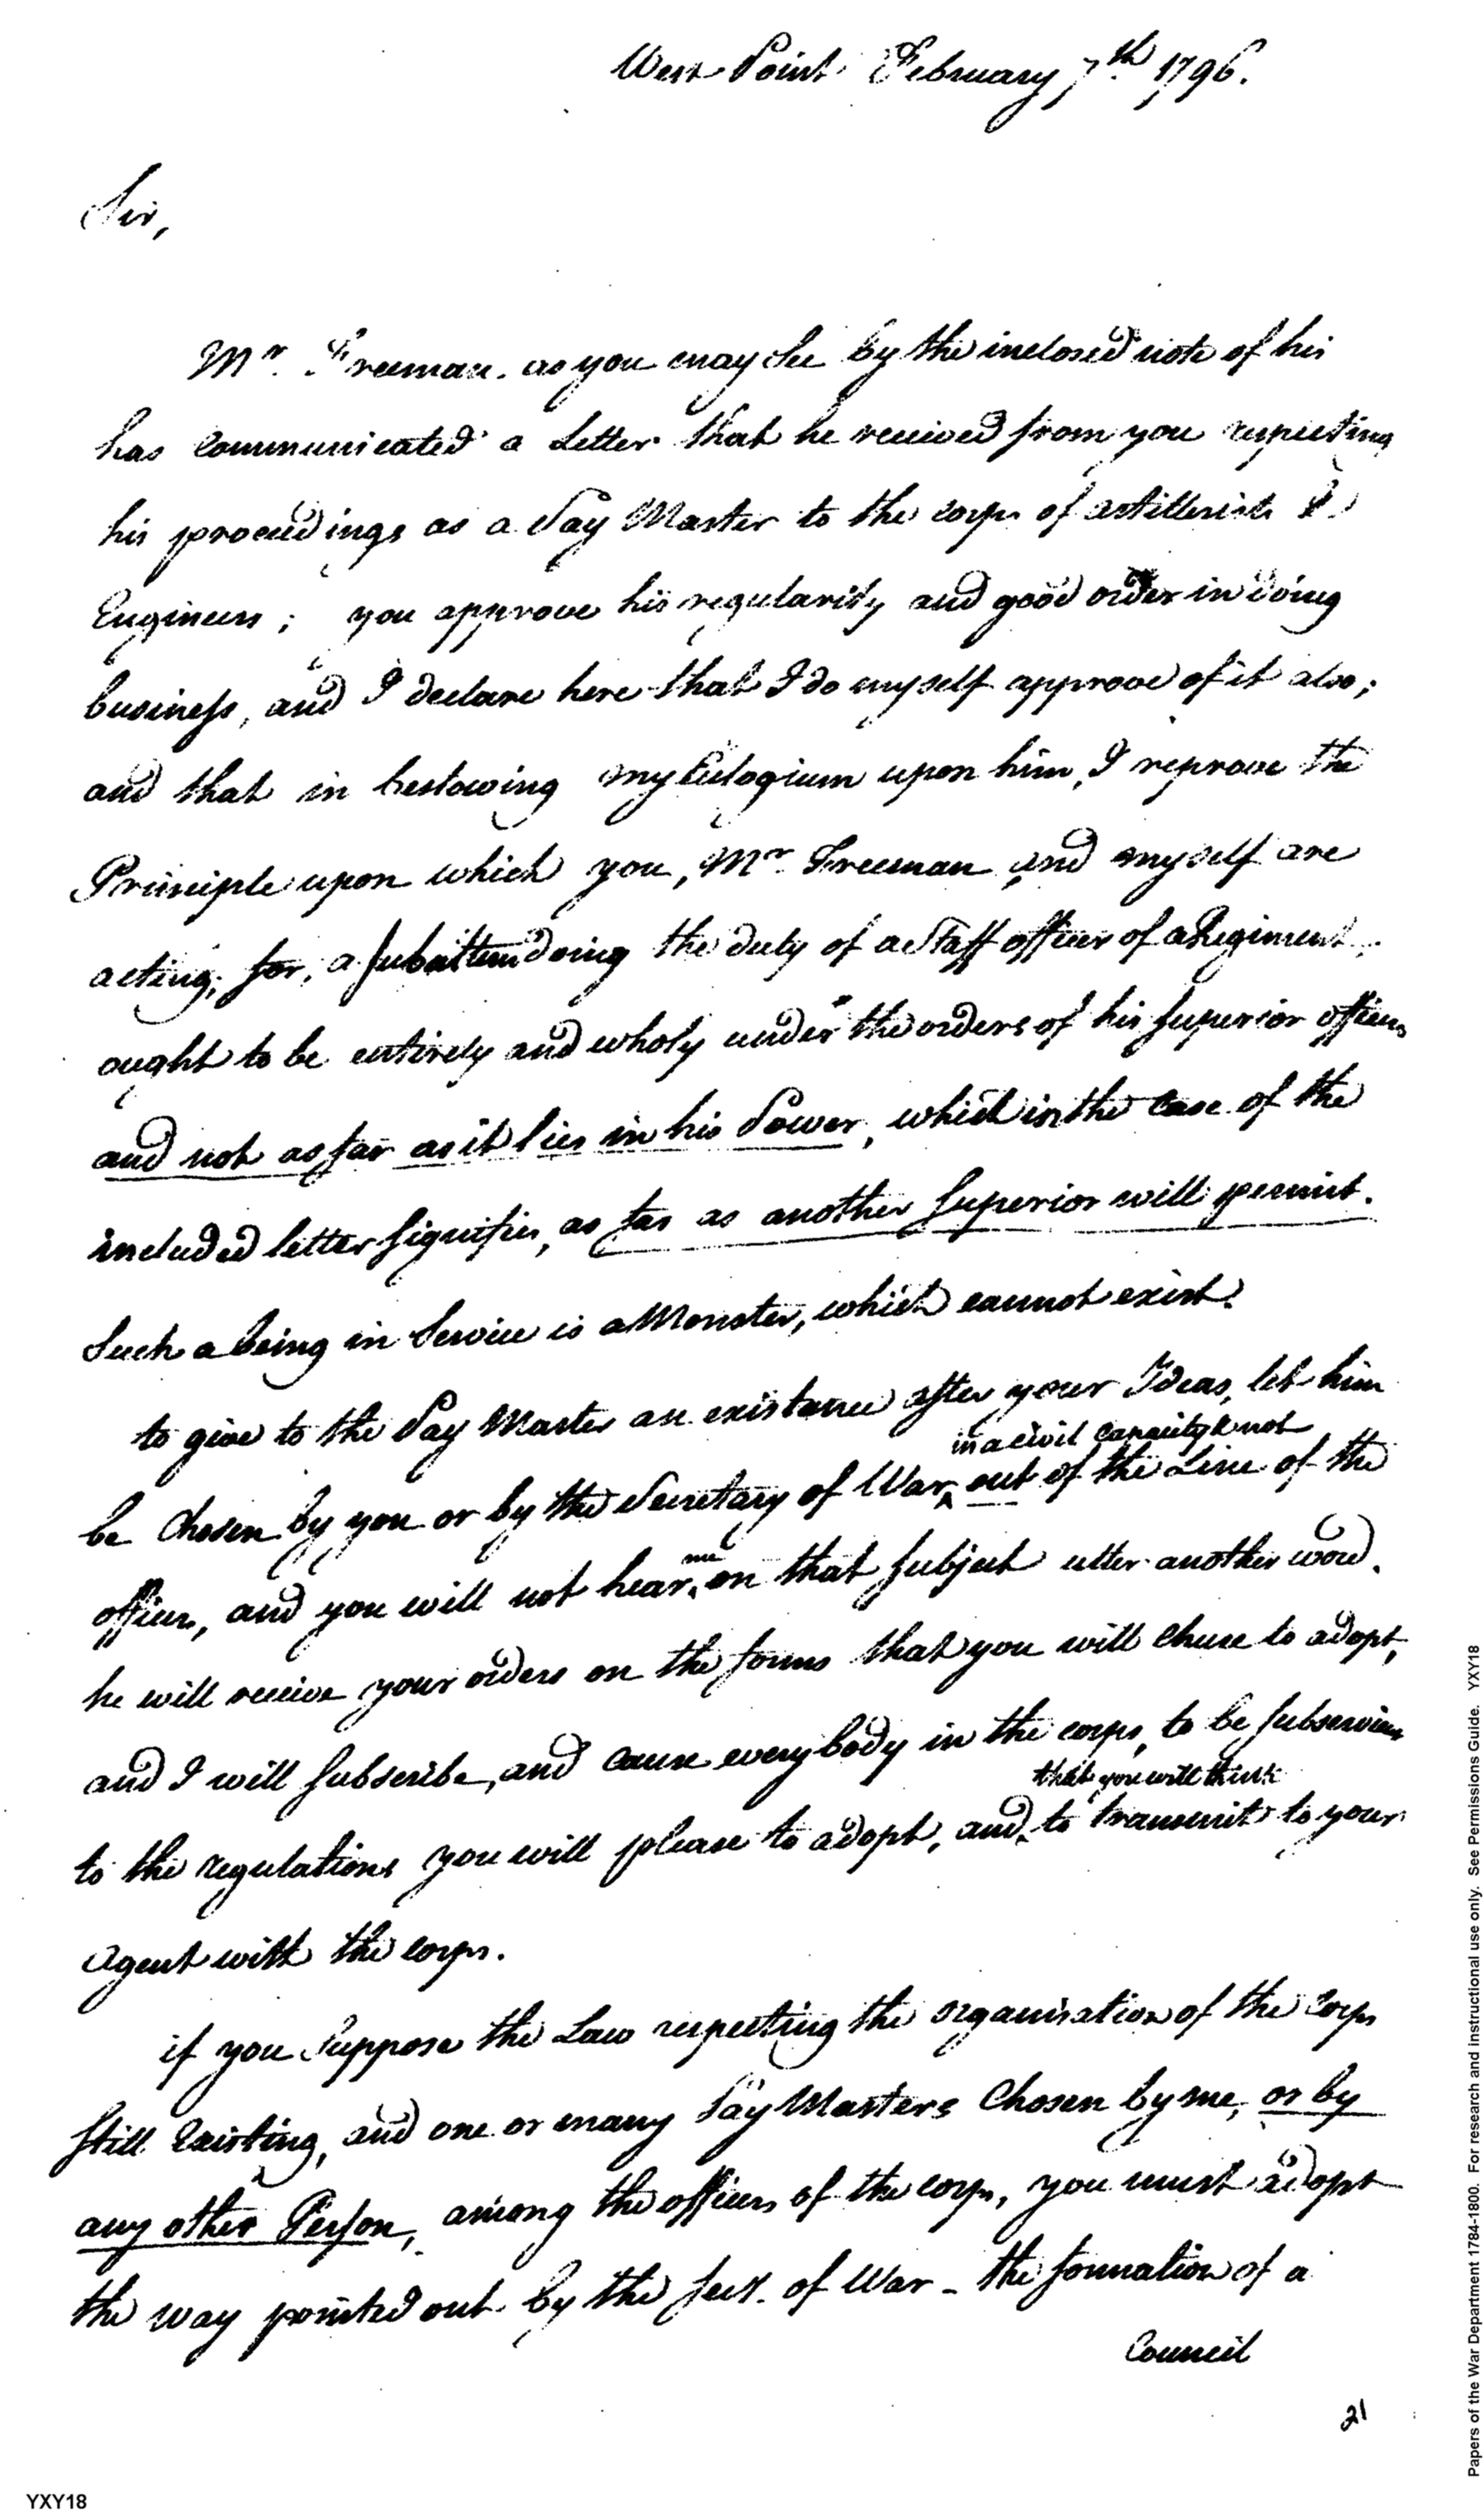 West Point February 7th 1796.
Sir,
Mr. Freeman. as you may See by the inclosed note of his
has communicated a Letter that he received from you respecting
his proceedings as a Pay Master to the corps of artillerists &
Engineers; you approve his regularity and good order in doing
business, and I declare here that I do myself approve of it also;
and that in bestowing my Eulogium upon him, I reprove the
Principle upon which you, Mr. Freeman and myself are
acting; for, a subaltern doing the duty of a Staff officer of a Regiment
ought to be entirely and wholy under the orders of his superior officers
and not as far as it lies in his Power, which in the case of the
included letter signifies, as far as another Superior will permit.
Such a being in Service is a Monster, which cannot exist.
to give to the Pay Master an existance after your Ideas, let him
in a civil capacity & not
be chosen by you or by the Secretary of War, out of the Line of the
officers, and you will not hear me on that subject utter another word.
he will receive your orders on the forms that you will chuse to adopt,
and I will subscribe, and cause everybody in the corps, to be subservient
that you will think
to the regulations you will please to adopt, and to transmit to your
Agent with the corps.
if you Suppose the Law respecting the organisation of the Corps
still Existing, and one or many Pay Masters Chosen by me, or by
any other Person, among the officers of the corps, you must adopt
the way pointed out by the Secy. of War - the formation of a
Council
21
YXY18
Papers of the War Department 1784-1800. For research and instructional use only. See Permissions Guide. YXY18